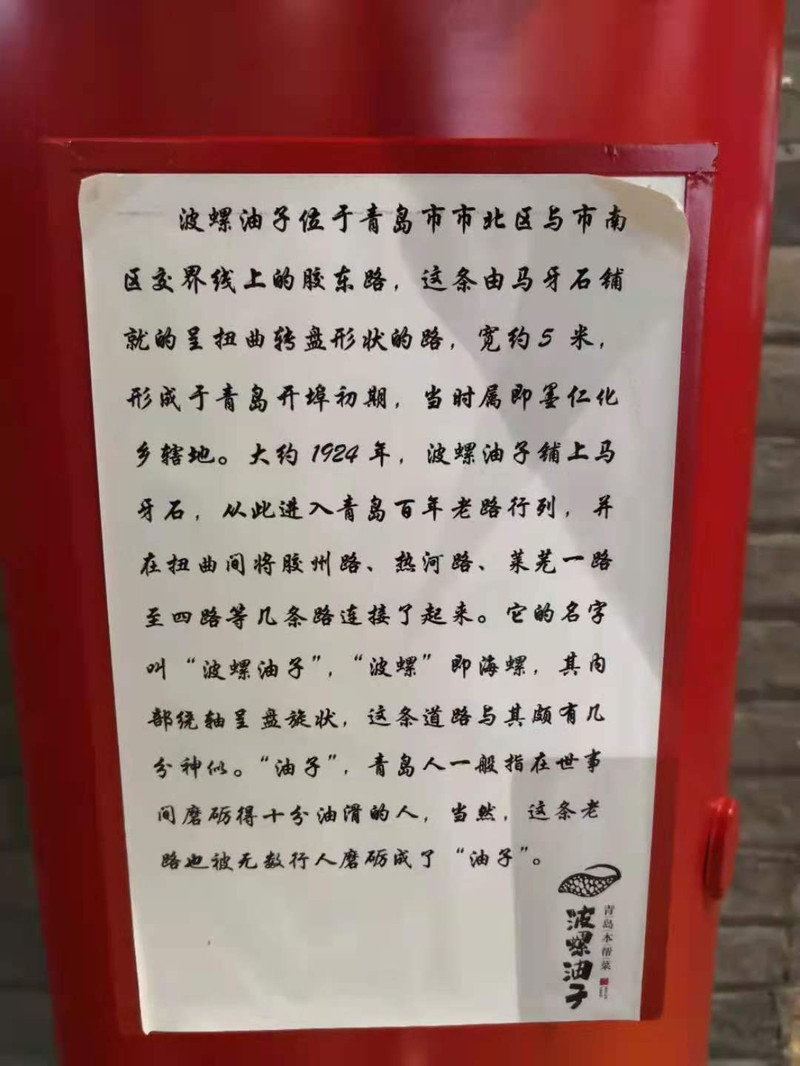 波螺油子位于青岛市市北区与市南
区交界线上的胶东路，这条由马牙石铺
就的呈扭曲转盘形状的路，宽约5米，
形成于青岛开埠初期，当时属即墨仁化
乡辖地。大约1924年，波螺油子铺上马
牙石，从此进入青岛百年老路行列，并
在扭曲间将胶州路、热河路、莱芜一路
至四路等几条路连接了起来。它的名字
叫“波螺油子”，“波螺”即海螺，其内
部绕轴呈盘旋状，这条道路与其颇有几
分神似。“油子”，青岛人一般指在世事
间磨砺得十分油滑的人，当然，这条老
路也被无数行人磨砺成了“油子”。
青岛本帮菜
波螺油子